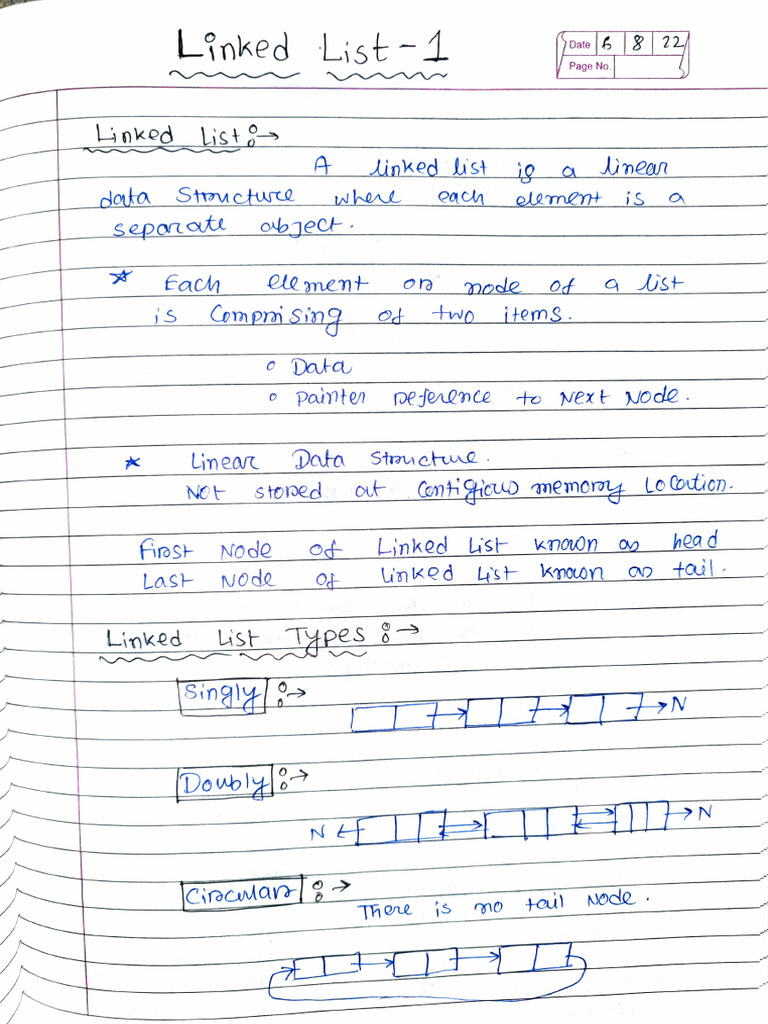 Linked List-1
Date 6 8 22
Page No.
Linked List:→
A linked list is a linear
data structure where each element is a
separate object.
* Each element or node of a list
is comprising of two items.
o Data
o Painter Reference to Next Node.
* Linear Data structure.
Not stored at contigious memory Location.
First Node of Linked List known as head
Last Node of linked List known as tail.
Linked List Types:→
Singly:→
N
Doubly:→
N N
Circular:→
There is no tail Node.